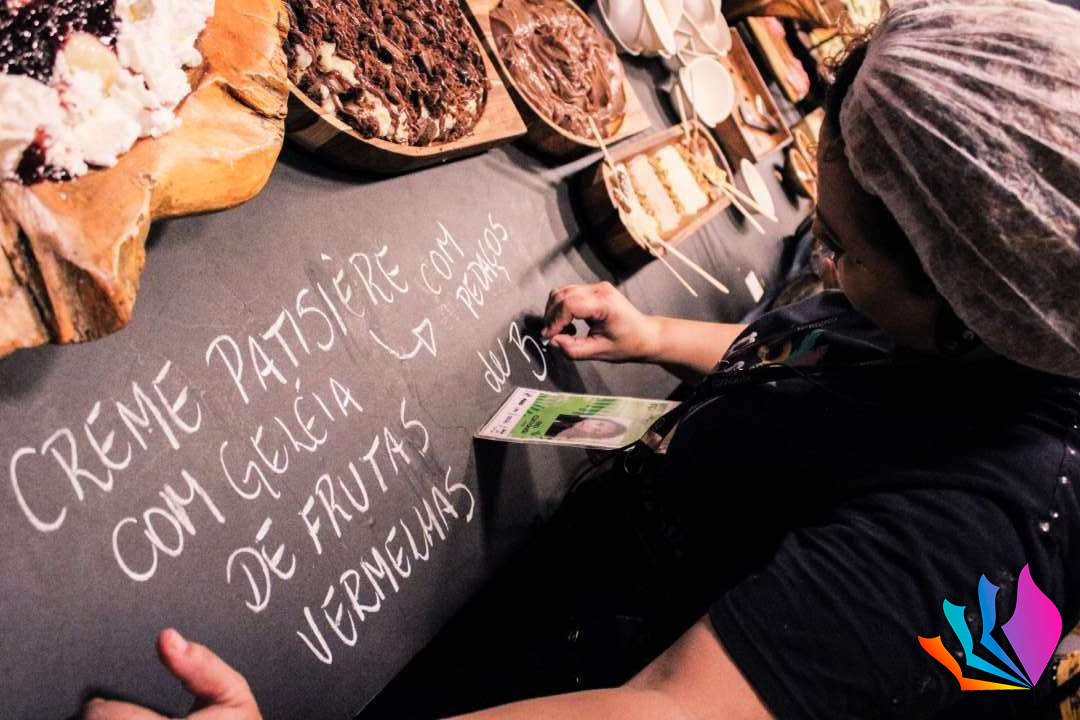 CREME PATISIÈRE
COM GELÉIA
DE FRUTAS
VERMELHAS
COM
PEDAÇOS
de B